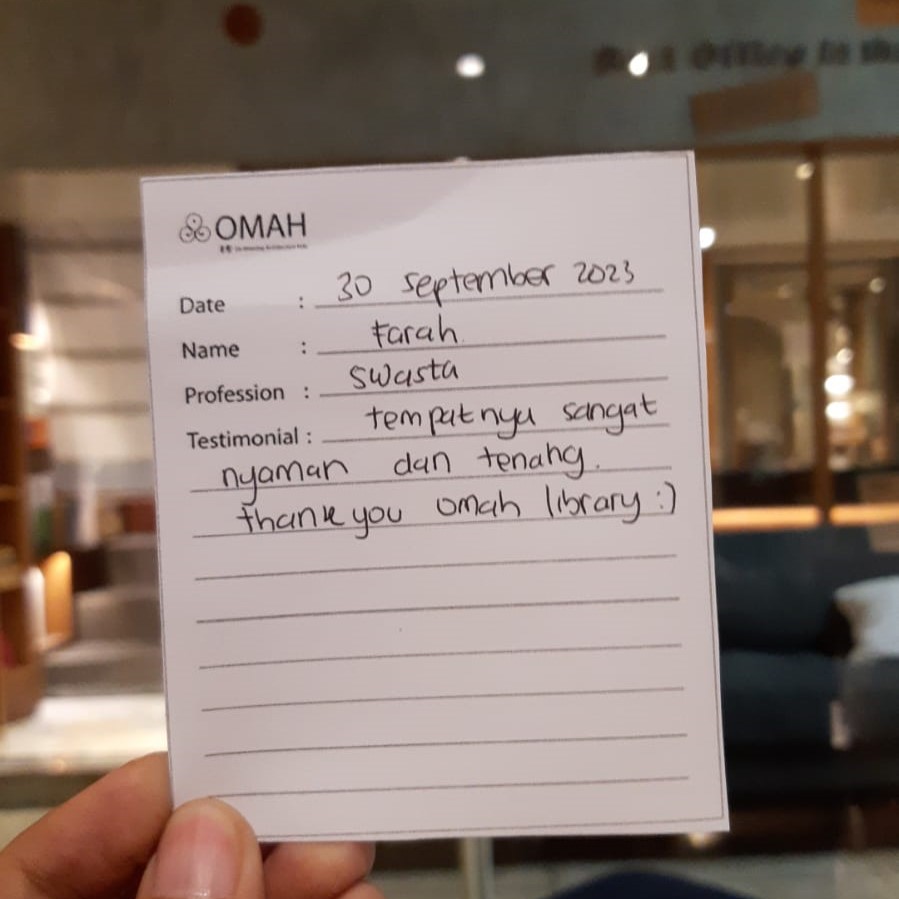 OMAH
Date : 30 September 2023
Name : Farah
Profession : Swasta
Testimonial : tempatnya sangat
nyaman dan tenang.
thank you omah library :)